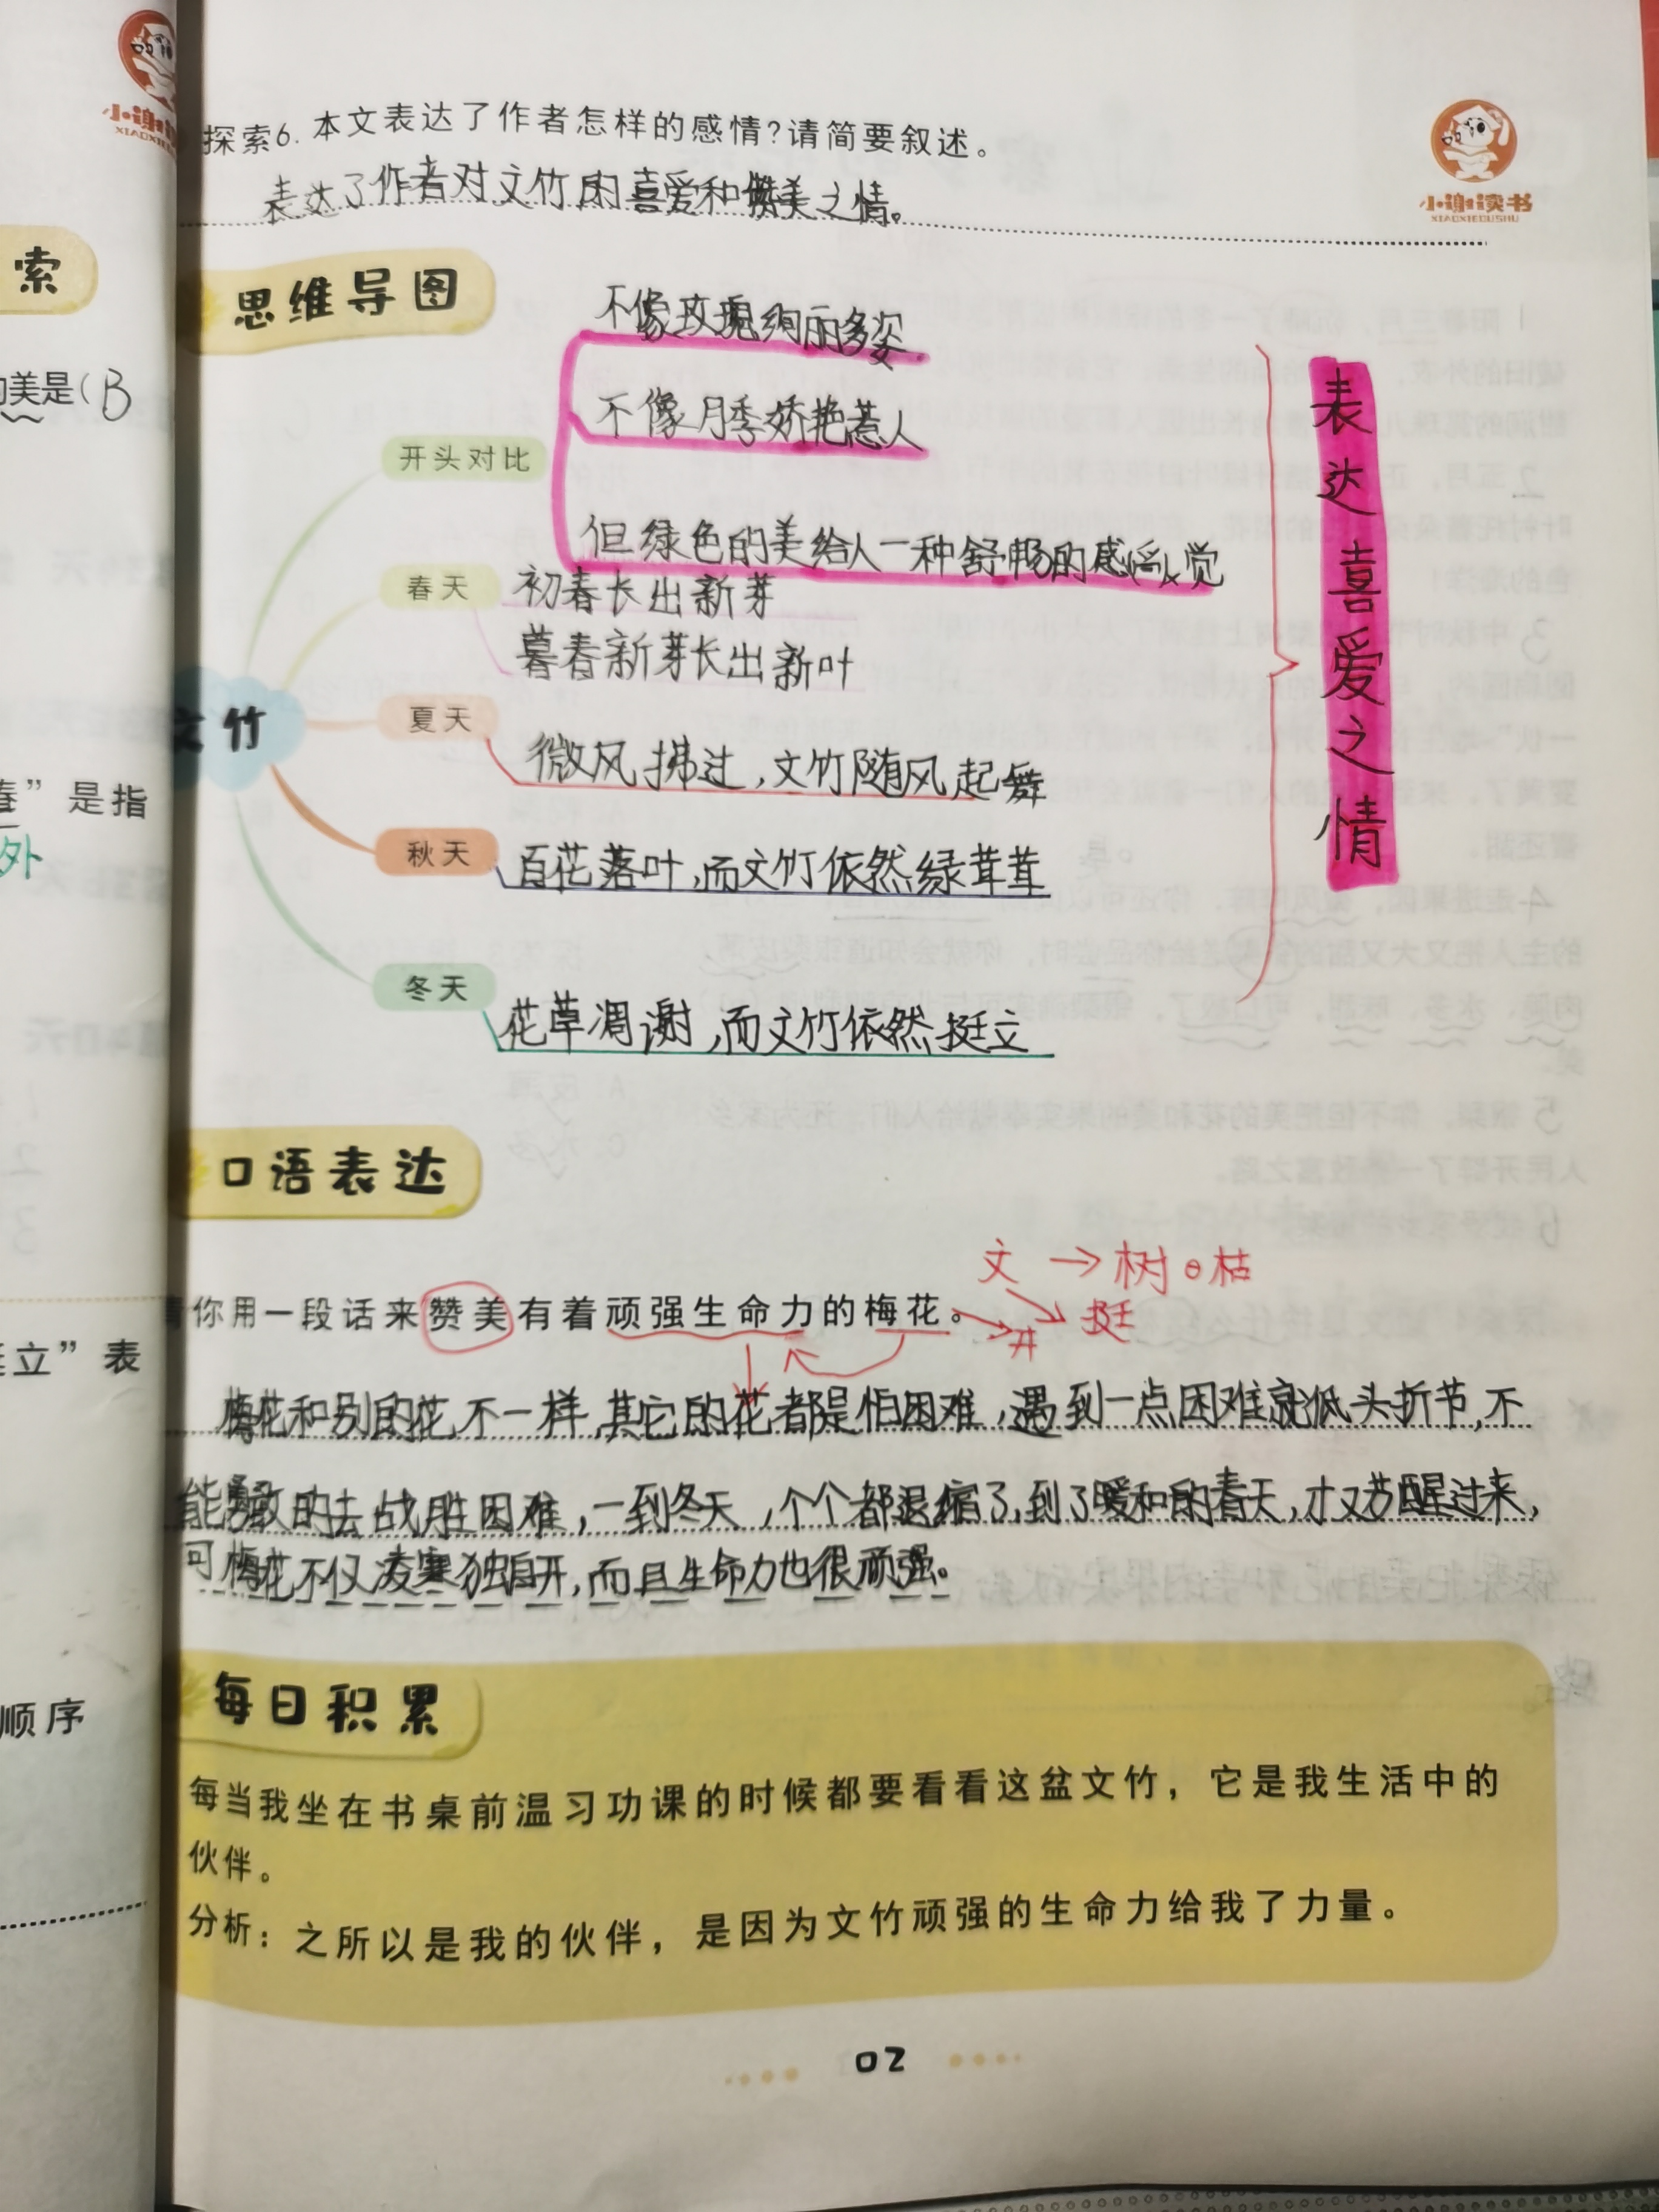 小谢读书
XIAOXIEDUSHU
探索6.本文表达了作者怎样的感情?请简要叙述。
表达了作者对文竹的喜爱和赞美之情。
索
思维导图
的美是(B
文竹
开头对比
不像玫瑰绚丽多姿.
不像月季娇艳惹人
但绿色的美给人一种舒畅的感觉
春天
初春长出新芽
暮春新芽长出新叶
夏天
微风拂过,文竹随风起舞
秋天
百花落叶,而文竹依然绿茸茸
冬天
花草凋谢,而文竹依然挺立
表达喜爱之情
春”是指
外
立”表
顺序
口语表达
文→树 枯
→挺
→开
请你用一段话来赞美有着顽强生命力的梅花。
梅花和别的花不一样,其它的花都是怕困难,遇到一点困难就低头折节,不
能勇敢的去战胜困难,一到冬天,个个都退缩了,到了暖和的春天,才又苏醒过来,
可梅花不仅凌寒独自开,而且生命力也很顽强。
每日积累
每当我坐在书桌前温习功课的时候都要看看这盆文竹，它是我生活中的
伙伴。
分析：之所以是我的伙伴，是因为文竹顽强的生命力给我了力量。
02